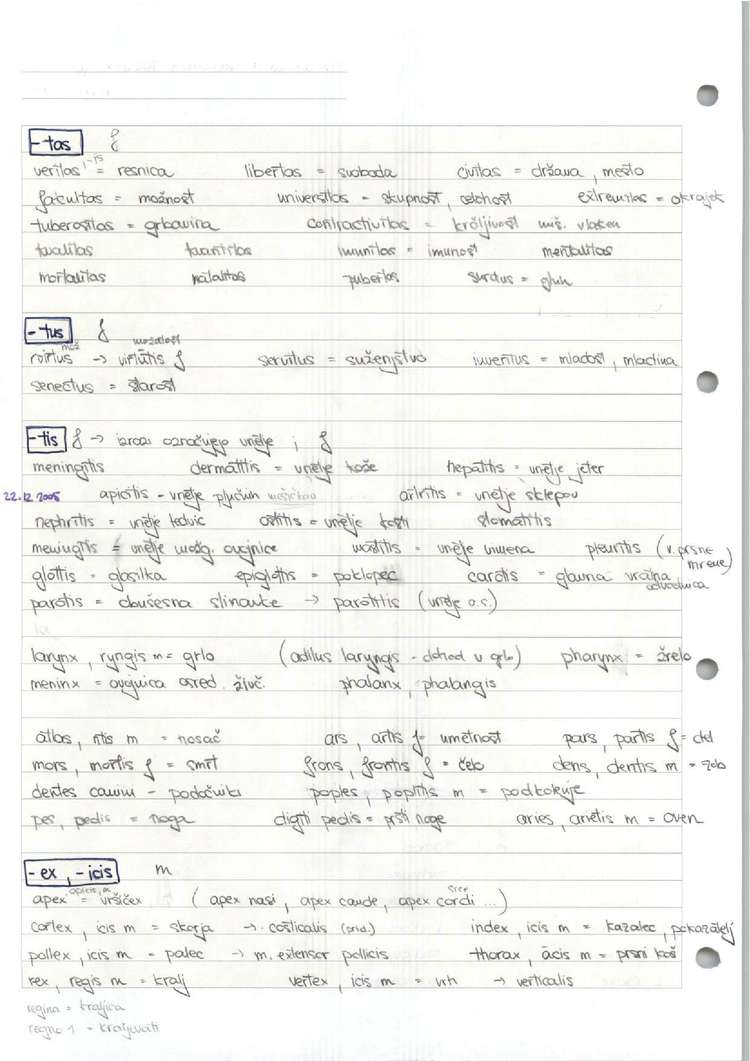 -tas f
veritas, -is = resnica libertas = svoboda civitas = država, mesto
facultas = možnost universitas = skupnost, celotnost extremitas = okrajek
tuberositas = grbavina contractivitas = krčljivost miš. vlaken
qualitas quantitas imunitas = imunost mentalitas
mortalitas natalitas pubertas surdus = gluh
-tus f
mož možatost
virtus → virtutis f servitus = suženjstvo iuventus = mladost, mladina
senectus = starost
-tis f → izrazi označujejo vnetje ; f
meningitis dermatitis = vnetje kože hepatitis = vnetje jeter
22.12.2005 apicitis - vnetje pljučnih vršičkov artritis = vnetje sklepov
nephritis = vnetje ledvic ostitis = vnetje kosti stomatitis
meningitis = vnetje možg. ovojnice mastitis = vnetje vimena pleuritis (v. prsne mrene)
glottis = glasilka epiglottis = poklopec carotis = glavna vratna odvodnica
parotis = obušesna slinavke → parotitis (vnetje o.s.)
larynx, ryngis m = grlo (aditus laryngis - dohod v grlo) pharynx = žrelo
meninx = ovojnica osred. živč. phalanx, phalangis
atlas, ntis m = nosač ars, artis f = umetnost pars, partis f = del
mors, mortis f = smrt frons, frontis f = čelo dens, dentis m = zob
dentes canini - podočniki poples, poplitis m = podkolenje
pes, pedis = noga digiti pedis = prsti noge aries, arietis m = oven
-ex, -icis m
apicis, m srce
apex = vršiček (apex nasi, apex caude, apex cordi ...)
cortex, icis m = skorja → corticalis (prid.) index, icis m = kazalec, pokazatelj
pollex, icis m = palec → m. extensor pollicis thorax, ācis m = prsni koš
rex, regis m = kralj vertex, icis m = vrh → verticalis
regina = kraljica
regno 1 - kraljevati